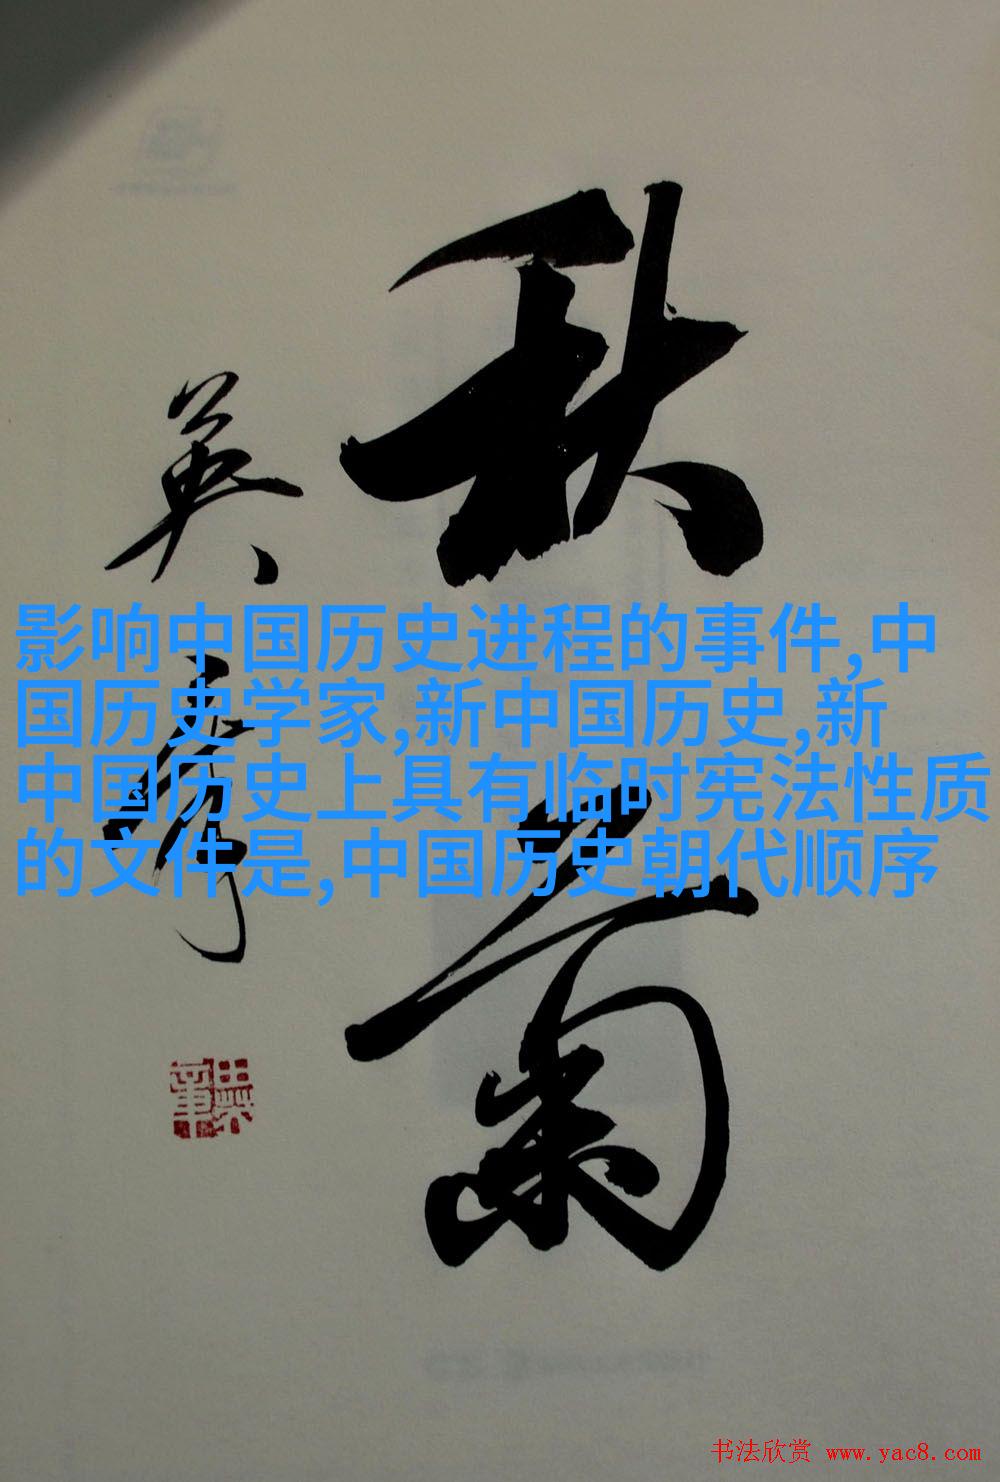 秋菊
英序
影响中国历史进程的事件,中
国历史学家,新中国历史,新
中国历史上具有临时宪法性质
的文件是,中国历史朝代顺序
书法欣赏 www.yac8.com